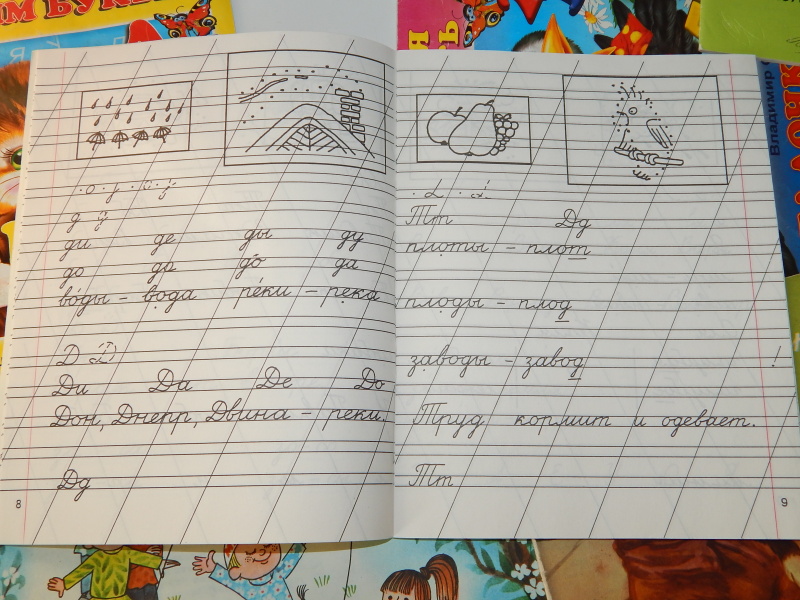 Владимир
д д
ди де ды ду
до да до да
во́ды – вода ре́ки – река
Д Д
Ди Да Де До
Дон, Днепр, Двина – реки.
Дд
8
Тт Дд
плоты – плот
плоды – плод
заводы – завод !
Труд кормит и одевает.
Тт
9